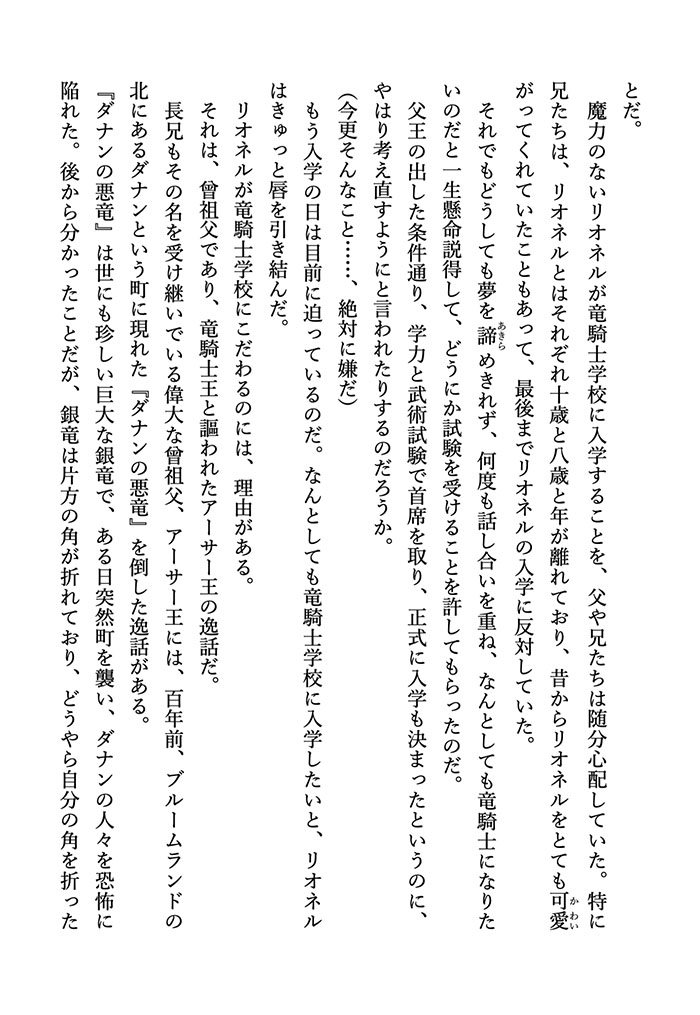 とだ。
　魔力のないリオネルが竜騎士学校に入学することを、父や兄たちは随分心配していた。特に
兄たちは、リオネルとはそれぞれ十歳と八歳と年が離れており、昔からリオネルをとても可愛
がってくれていたこともあって、最後までリオネルの入学に反対していた。
　それでもどうしても夢を諦めきれず、何度も話し合いを重ね、なんとしても竜騎士になりた
いのだと一生懸命説得して、どうにか試験を受けることを許してもらったのだ。
　父王の出した条件通り、学力と武術試験で首席を取り、正式に入学も決まったというのに、
やはり考え直すようにと言われたりするのだろうか。
（今更そんなこと……、絶対に嫌だ）
　もう入学の日は目前に迫っているのだ。なんとしても竜騎士学校に入学したいと、リオネル
はきゅっと唇を引き結んだ。
　リオネルが竜騎士学校にこだわるのには、理由がある。
　それは、曾祖父であり、竜騎士王と謳われたアーサー王の逸話だ。
　長兄もその名を受け継いでいる偉大な曾祖父、アーサー王には、百年前、ブルームランドの
北にあるダナンという町に現れた『ダナンの悪竜』を倒した逸話がある。
『ダナンの悪竜』は世にも珍しい巨大な銀竜で、ある日突然町を襲い、ダナンの人々を恐怖に
陥れた。後から分かったことだが、銀竜は片方の角が折れており、どうやら自分の角を折った